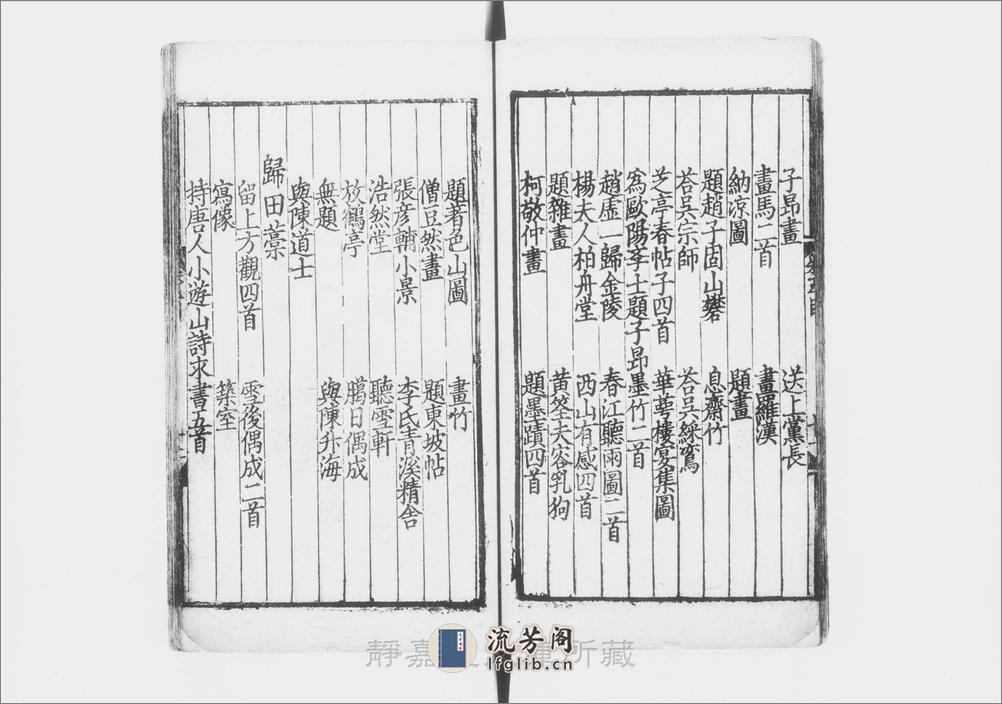 子昂畫　送上黨長
畫馬二首　畫羅漢
納涼圖　題畫
題趙子固山礬　息齋竹
荅吳宗師　荅吳綵鸞
芝亭春帖子四首　華萼樓宴集圖
為歐陽斈士題子昂墨竹二首
趙虛一歸金陵　春江聽雨圖二首
楊夫人柏舟堂　西山有感四首
題雜畫　黄筌夫容乳狗
柯敬仲畫　題墨蹟四首
題著色山圖　畫竹
僧豆然畫　題東坡帖
張彥輔小景　李氏青溪精舍
浩然堂　聽雪軒
放鶴亭　臈日偶成
無題　與陳升海
與陳道士
歸田藁
留上方觀四首　雪後偶成二首
寫像　築室
持唐人小遊山詩求書五首
靜嘉 所藏
流芳阁
lfglib.cn